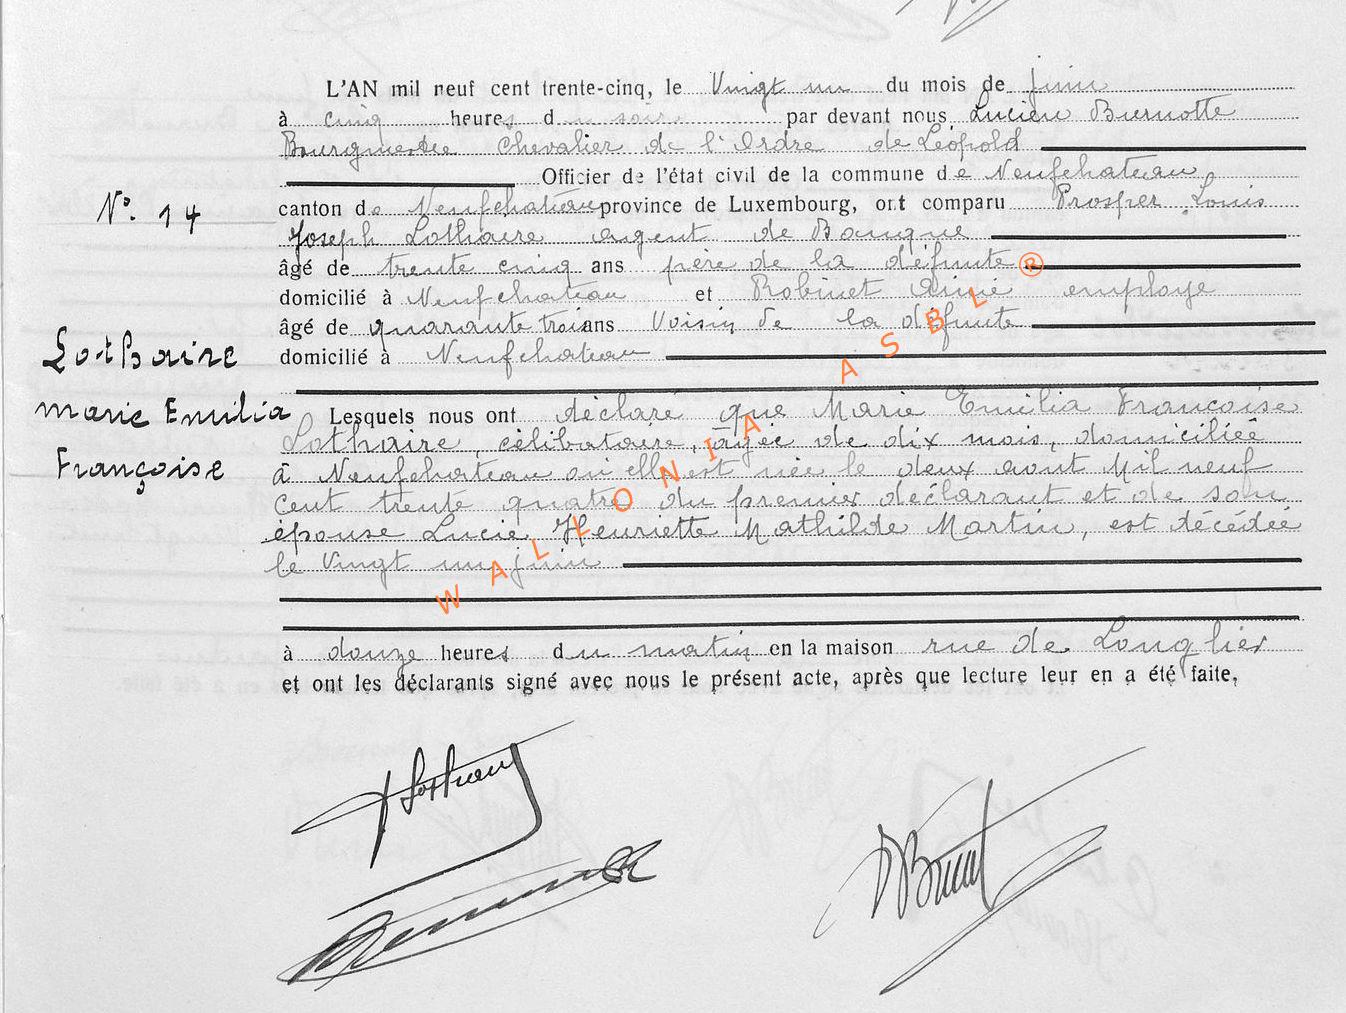 L'AN mil neuf cent trente-cinq, le Vingt un du mois de juin
à cinq heures du soir par devant nous Lucien Burnotte
Bourgmestre Chevalier de l'Ordre de Léopold
Officier de l'état civil de la commune de Neufchateau
N°. 14
canton de Neufchateau province de Luxembourg, ont comparu Prosper Louis
Joseph Lothaire agent de Banque
âgé de trente cinq ans père de la défunte ®
domicilié à Neufchateau et Robinet Aimé employé
âgé de quarante trois ans Voisin de la défunte
domicilié à Neufchateau
Lothaire
Marie Emilia
Françoise
Lesquels nous ont déclaré que Marie Emilia Françoise
Lothaire, célibataire, âgée de dix mois, domiciliée
à Neufchateau où elle est née le deux août Mil neuf
cent trente quatre du premier déclarant et de son
épouse Lucie Henriette Mathilde Martin, est décédée
le Vingt un juin
WALLONIA ASBL
à douze heures du matin en la maison rue de Longlier
et ont les déclarants signé avec nous le présent acte, après que lecture leur en a été faite,